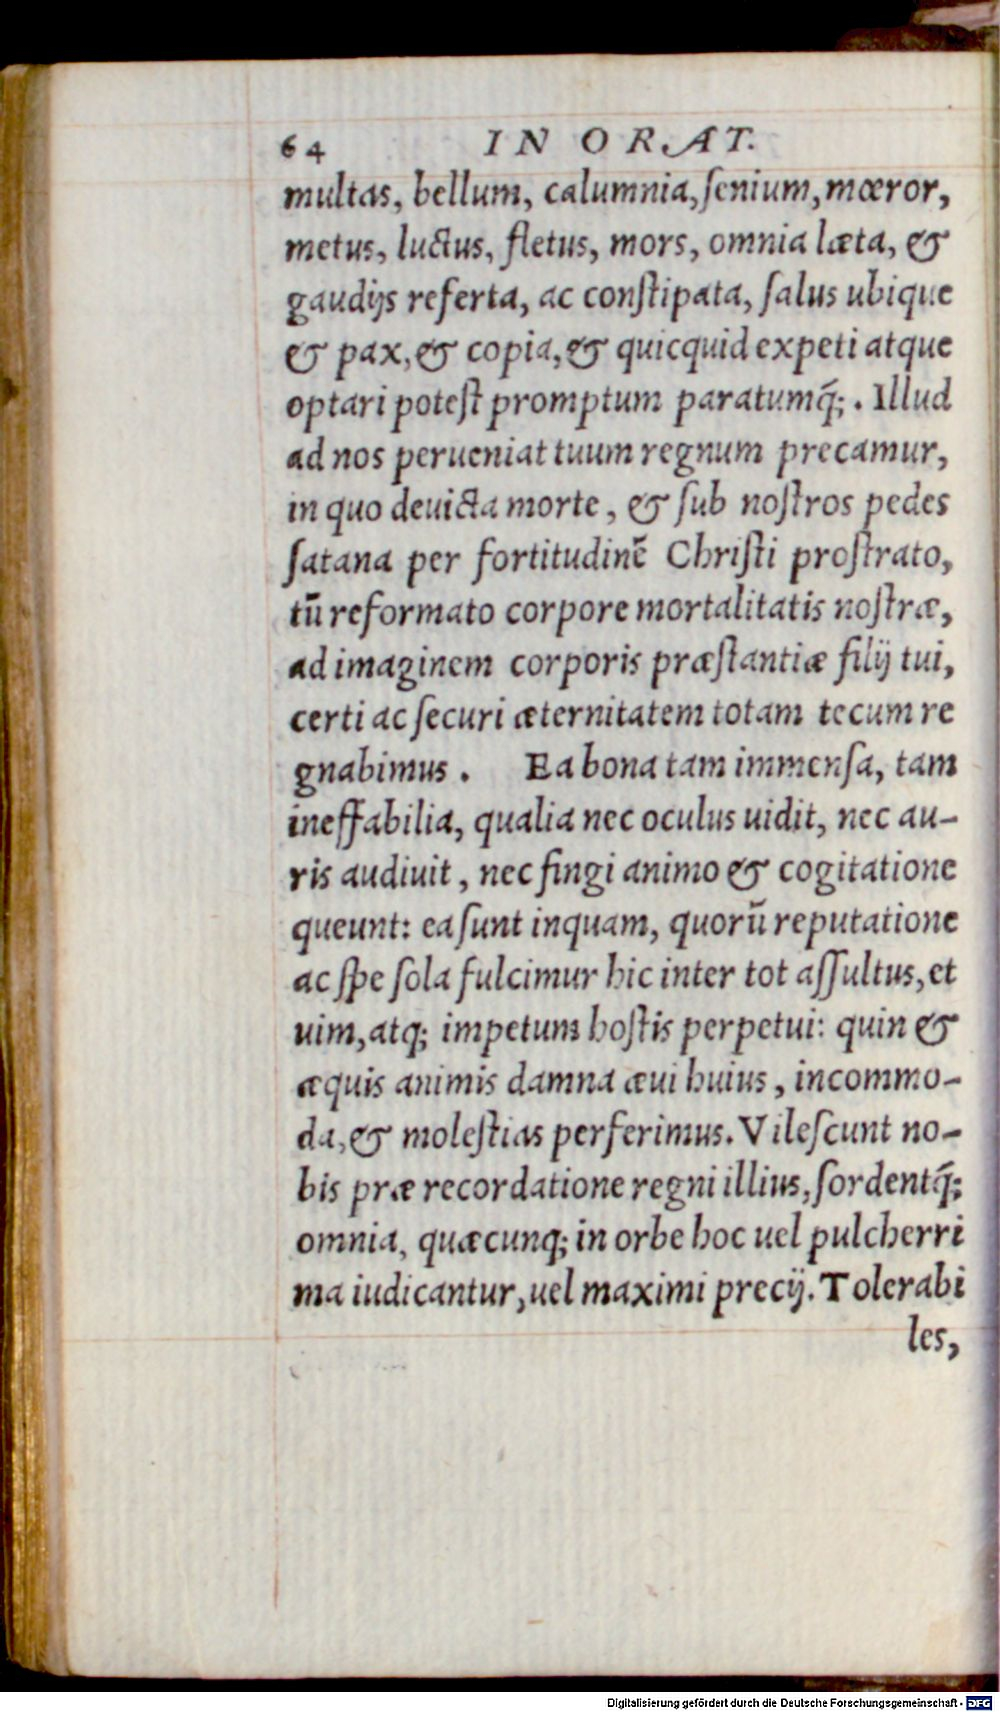 64 IN ORAT.
multas, bellum, calumnia, ſenium, mœror,
metus, luctus, fletus, mors, omnia læta, &
gaudijs referta, ac conſtipata, ſalus ubique
& pax, & copia, & quicquid expeti atque
optari poteſt promptum paratumq́;. Illud
ad nos perueniat tuum regnum precamur,
in quo deuicta morte, & ſub noſtros pedes
ſatana per fortitudinē Chriſti proſtrato,
tū reformato corpore mortalitatis noſtræ,
ad imaginem corporis præſtantiæ filij tui,
certi ac ſecuri æternitatem totam tecum re
gnabimus. Ea bona tam immenſa, tam
ineffabilia, qualia nec oculus uidit, nec au-
ris audiuit, nec fingi animo & cogitatione
queunt: ea ſunt inquam, quorū reputatione
ac ſpe ſola fulcimur hic inter tot aſſultus, et
uim, atq; impetum hoſtis perpetui: quin &
æquis animis damna æui huius, incommo-
da, & moleſtias perferimus. Vileſcunt no-
bis præ recordatione regni illius, ſordentq́;
omnia, quæcunq; in orbe hoc uel pulcherri
ma iudicantur, uel maximi precij. Tolerabi
les,
Digitalisierung gefördert durch die Deutsche Forschungsgemeinschaft - DFG